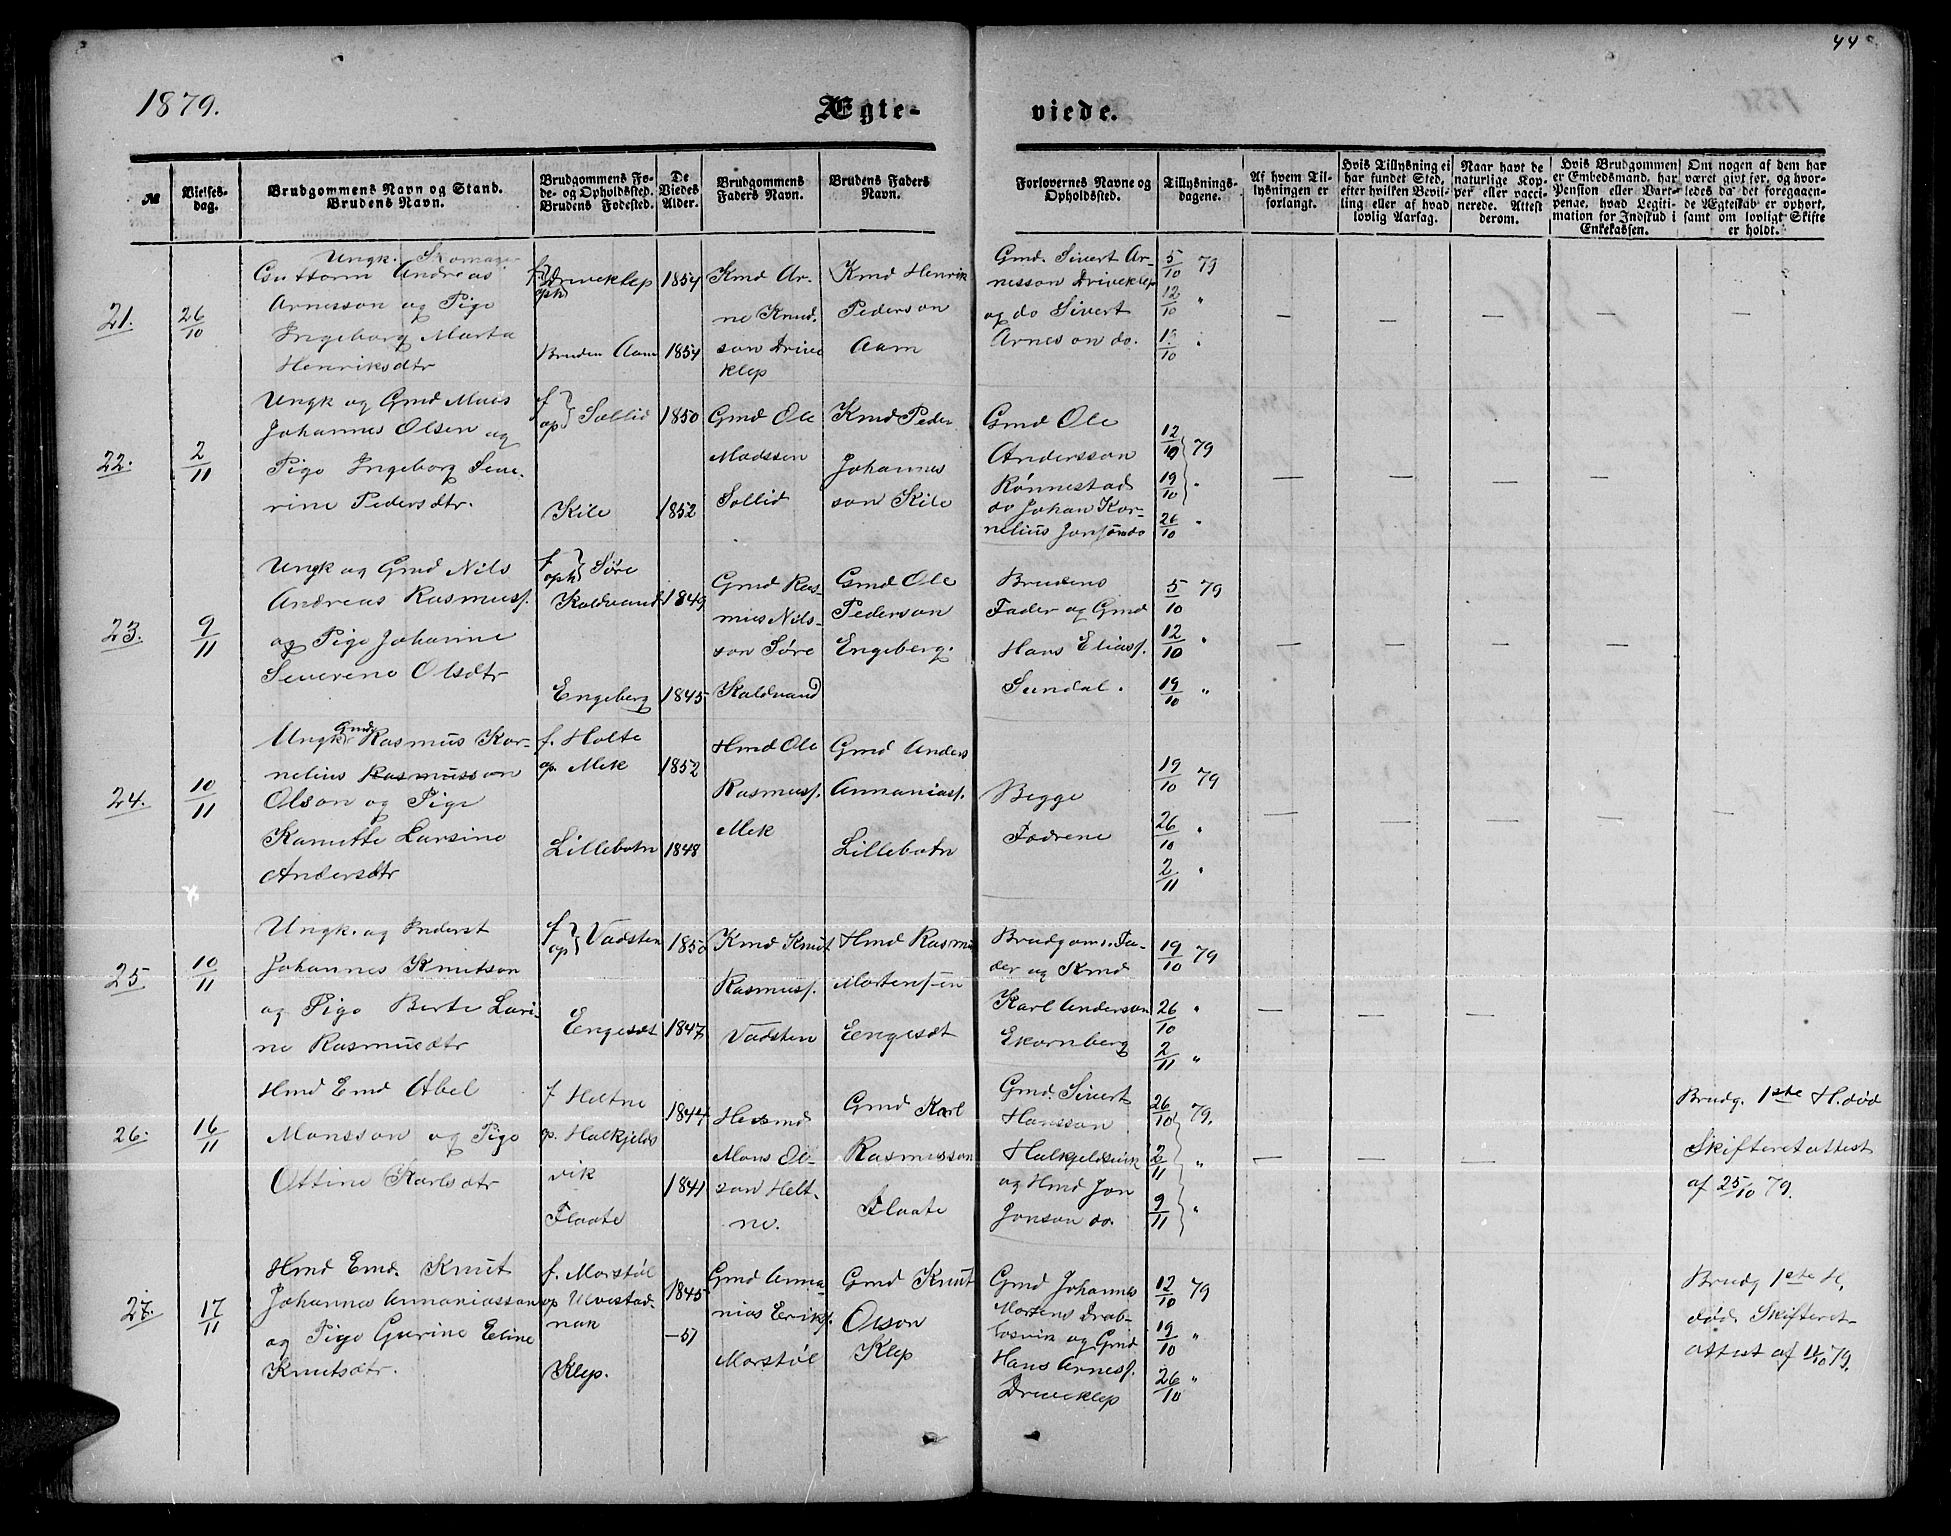 44
1879.
Ægte-
viede.
№
Vielses-
dag.
Brudgommens Navn og Stand.
Brudens Navn.
Brudgommens Fø-
de- og Opholdssted.
Brudens Fødested.
De
Viedes
Alder.
Brudgommens
Faders Navn.
Brudens Faders
Navn.
Forlovernes Navne og
Opholdssted.
Tillysnings-
dagene.
Af hvem Til-
lysningen er
forlangt.
Hvis Tillysning ei
har fundet Sted,
efter hvilken Bevil-
ling eller af hvad
lovlig Aarsag.
Naar havt de
naturlige Kop-
per eller vacci-
nerede. Attest
derom.
Hvis Brudgommen
er Embedsmand, har
Pension eller Vart-
penge, hvad Legiti-
mation for Indskud i
Enkekassen.
Om nogen af dem har
været givt før, og hvor-
ledes da det foregaaen-
de Ægteskab er ophørt,
samt om lovligt Skifte
er holdt.
21.
26/10
Ungk. Skomager
Guttorm Andreas
Arnesson og Pige
Ingeborg Marta
Henriksdtr
f oph Driveklep
Bruden Aam
1854
1854
Kmd Ar-
ne Knud-
son Drive
klep
Kmd Henrik
Pederson
Aam
Gmd. Sivert Ar-
nesson Driveklep
og do Sivert
Arneson do.
5/10 79
12/10 "
19/10 "
22.
2/11
Ungk og Gmd Mads
Johannes Olsen og
Pige Ingeborg Seve-
rine Pedersdtr.
f op Sollid
Kile
1850
1852
Gmd Ole
Madssen
Sollid
Kmd Peder
Johannes
son Kile
Gmd Ole
Andersson
Rønnestad
do Johan Kor-
nelius Jonson do
12/10 79
19/10 "
26/10 "
23.
9/11
Ungk og Gmd Nils
Andreas Rasmuss.
og Pige Johanne
Severene Olsdtr
f oph Søre
Koldvand
Engeberg
1849
1845
Gmd Ras-
mus Nils-
son Søre
Koldvand
Gmd Ole
Pederson
Engeberg.
Brudens
Fader og Gmd
Hans Eliass.
Sundal.
5/10 79
12/10 "
19/10 "
24.
10/11
Ungk Gmd Rasmus Kor-
nelius Rasmusson
Olson og Pige
Kanutte Larsine
Andersdtr
f. Holte
op. Mek
Lillebotn
1852
1848
Hmd Ole
Rasmuss.
Mek
Gmd Anders
Annaniass.
Lillebotn
Begge
Fædrene
19/10 79
26/10 "
2/11 "
25.
10/11
Ungk. og Inderst
Johannes Knutson
og Pige Berte Lavi-
ne Rasmusdtr
f op Vadsten
Engesæt
1850
1847
Kmd Knut
Rasmuss.
Vadsten
Hmd Rasmus
Mortenssen
Engesæt
Brudgoms. Fa-
der og Kmd
Karl Anderson
Ekornberg
19/10 79
26/10 "
2/11 "
26.
16/11
Hmd Emd Abel
Monsson og Pige
Ottine Karlsdtr
f Heltne
op. Halkjelds
vik
Flaate
1844
1841
Husmd
Mons Ol-
son Helt-
ne.
Gmd Karl
Rasmusson
Flaate
Gmd. Sivert
Hansson
Halkjeldsvik
og Hmd Jon
Jonson do.
26/10 79.
2/11 "
9/11 "
Brudg. 1ste H. død
Skifteretattest
af 25/10 79.
27.
17/11
Hmd Emd. Knut
Johannes Annaniasson
og Pige Gurine Eline
Knutsdtr.
f. Morstøl
op Ulvestad-
nak
Klep.
1845
-51
Gmd Anna-
nias Eriks.
Morstøl
Gmd Knut
Olson
Klep
Gmd Johannes
Mortens Drab-
løsvik og Gmd
Hans Arness.
Driveklep
12/10 79
19/10 "
26/10 "
Brudg 1ste H.
død Skifteret-
attest af 11/10 79.